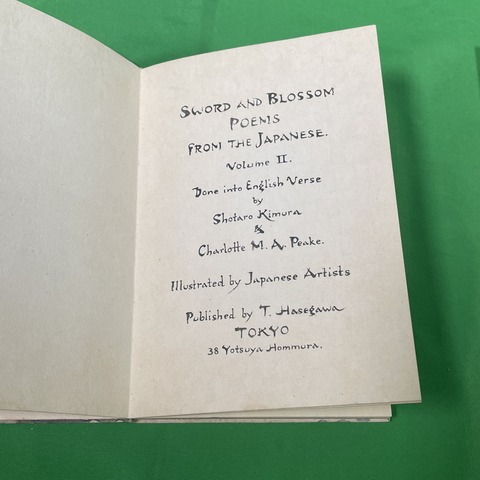 Sword and Blossom
Poems
from the Japanese.
Volume II.
Done into English Verse
by
Shotaro Kimura
&
Charlotte M. A. Peake.
Illustrated by Japanese Artists
Published by T. Hasegawa
TOKYO
38 Yotsuya Hommura.